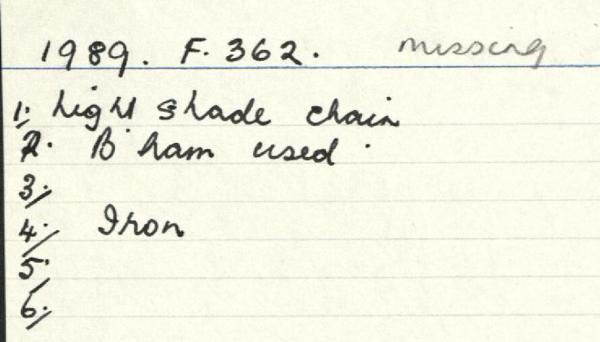 1989. F. 362. missing
1. Light shade chain
2. B'ham used.
3.
4. Iron
5.
6.